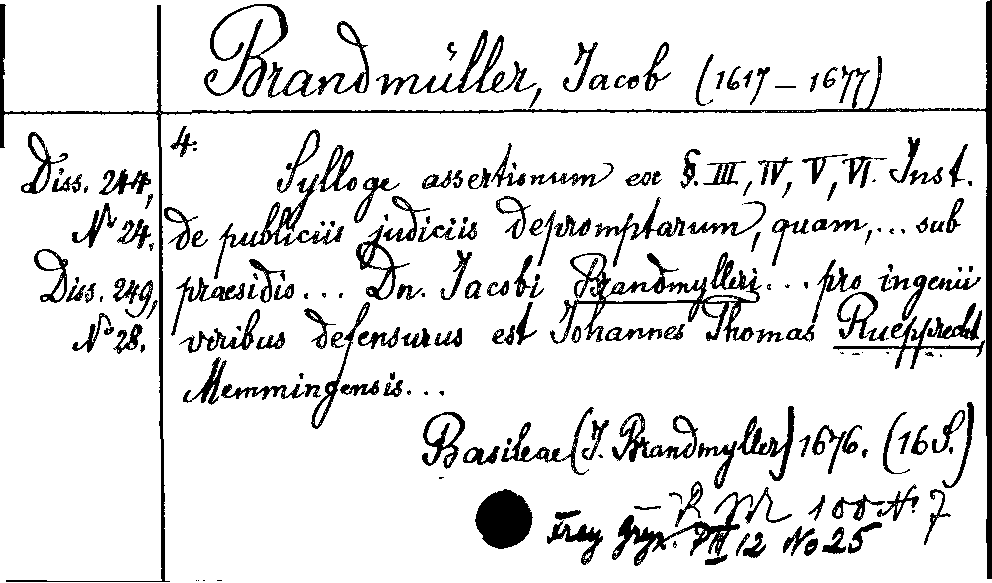 Brandmüller, Jacob (1617 – 1677)
4.
Diss. 244,
No 24.
Diss. 249,
No 28.
Sylloge assertionum ex §. III, IV, V, VI. Inst.
de publiciis judiciis depromptarum, quam,... sub
praesidio... Dn. Jacobi Brandmylleri... pro ingenii
viribus defensurus est Johannes Thomas Ruepprecht,
Memmingensis...
Basileae (J. Brandmyller) 1676. (16 S.)
100 No 7
Frey Gryn. VIII 12 No 25